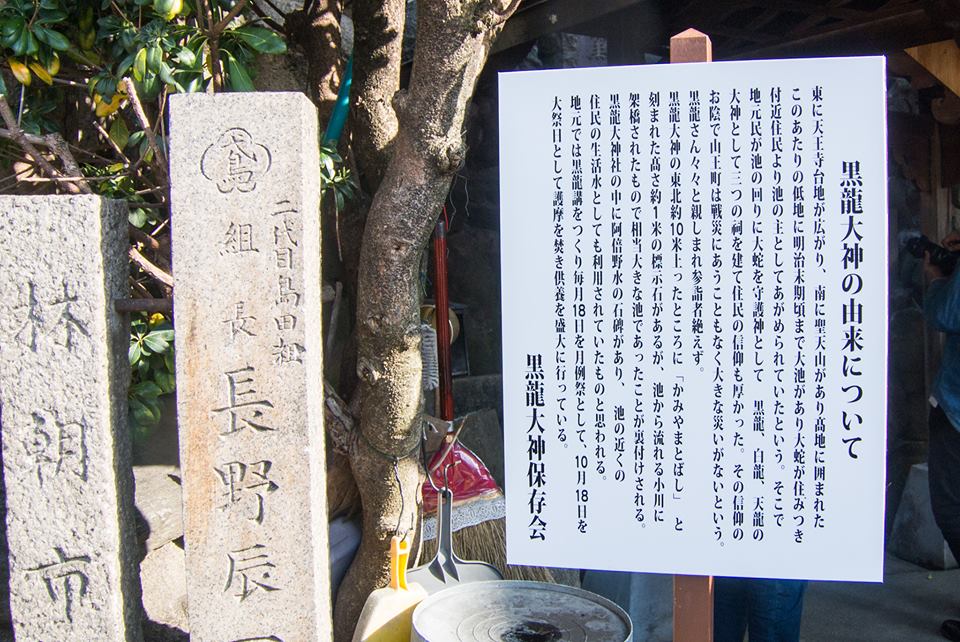 黒龍大神の由来について
東に天王寺台地が広がり、南に聖天山があり高地に囲まれた
このあたりの低地に明治末期頃まで大池があり大蛇が住みつき
付近住民より池の主としてあがめられていたという。そこで
地元民が池の回りに大蛇を守護神として　黒龍、白龍、天龍の
大神として三つの祠を建て住民の信仰も厚かった。その信仰の
お陰で山王町は戦災にあうこともなく大きな災いがないという。
黒龍さん々々と親しまれ参詣者絶えず。
黒龍大神の東北約10米上ったところに「かみやまとばし」　と
刻まれた高さ約1米の標示石があるが、池から流れる小川に
架橋されたもので相当大きな池であったことが裏付けされる。
黒龍大神社の中に阿倍野水の石碑があり、　池の近くの
住民の生活水としても利用されていたものと思われる。
地元では黒龍講をつくり毎月18日を月例祭として、10月18日を
大祭日として護摩を焚き供養を盛大に行っている。
黒龍大神保存会
二代目島田組
組長長野辰
林朝市